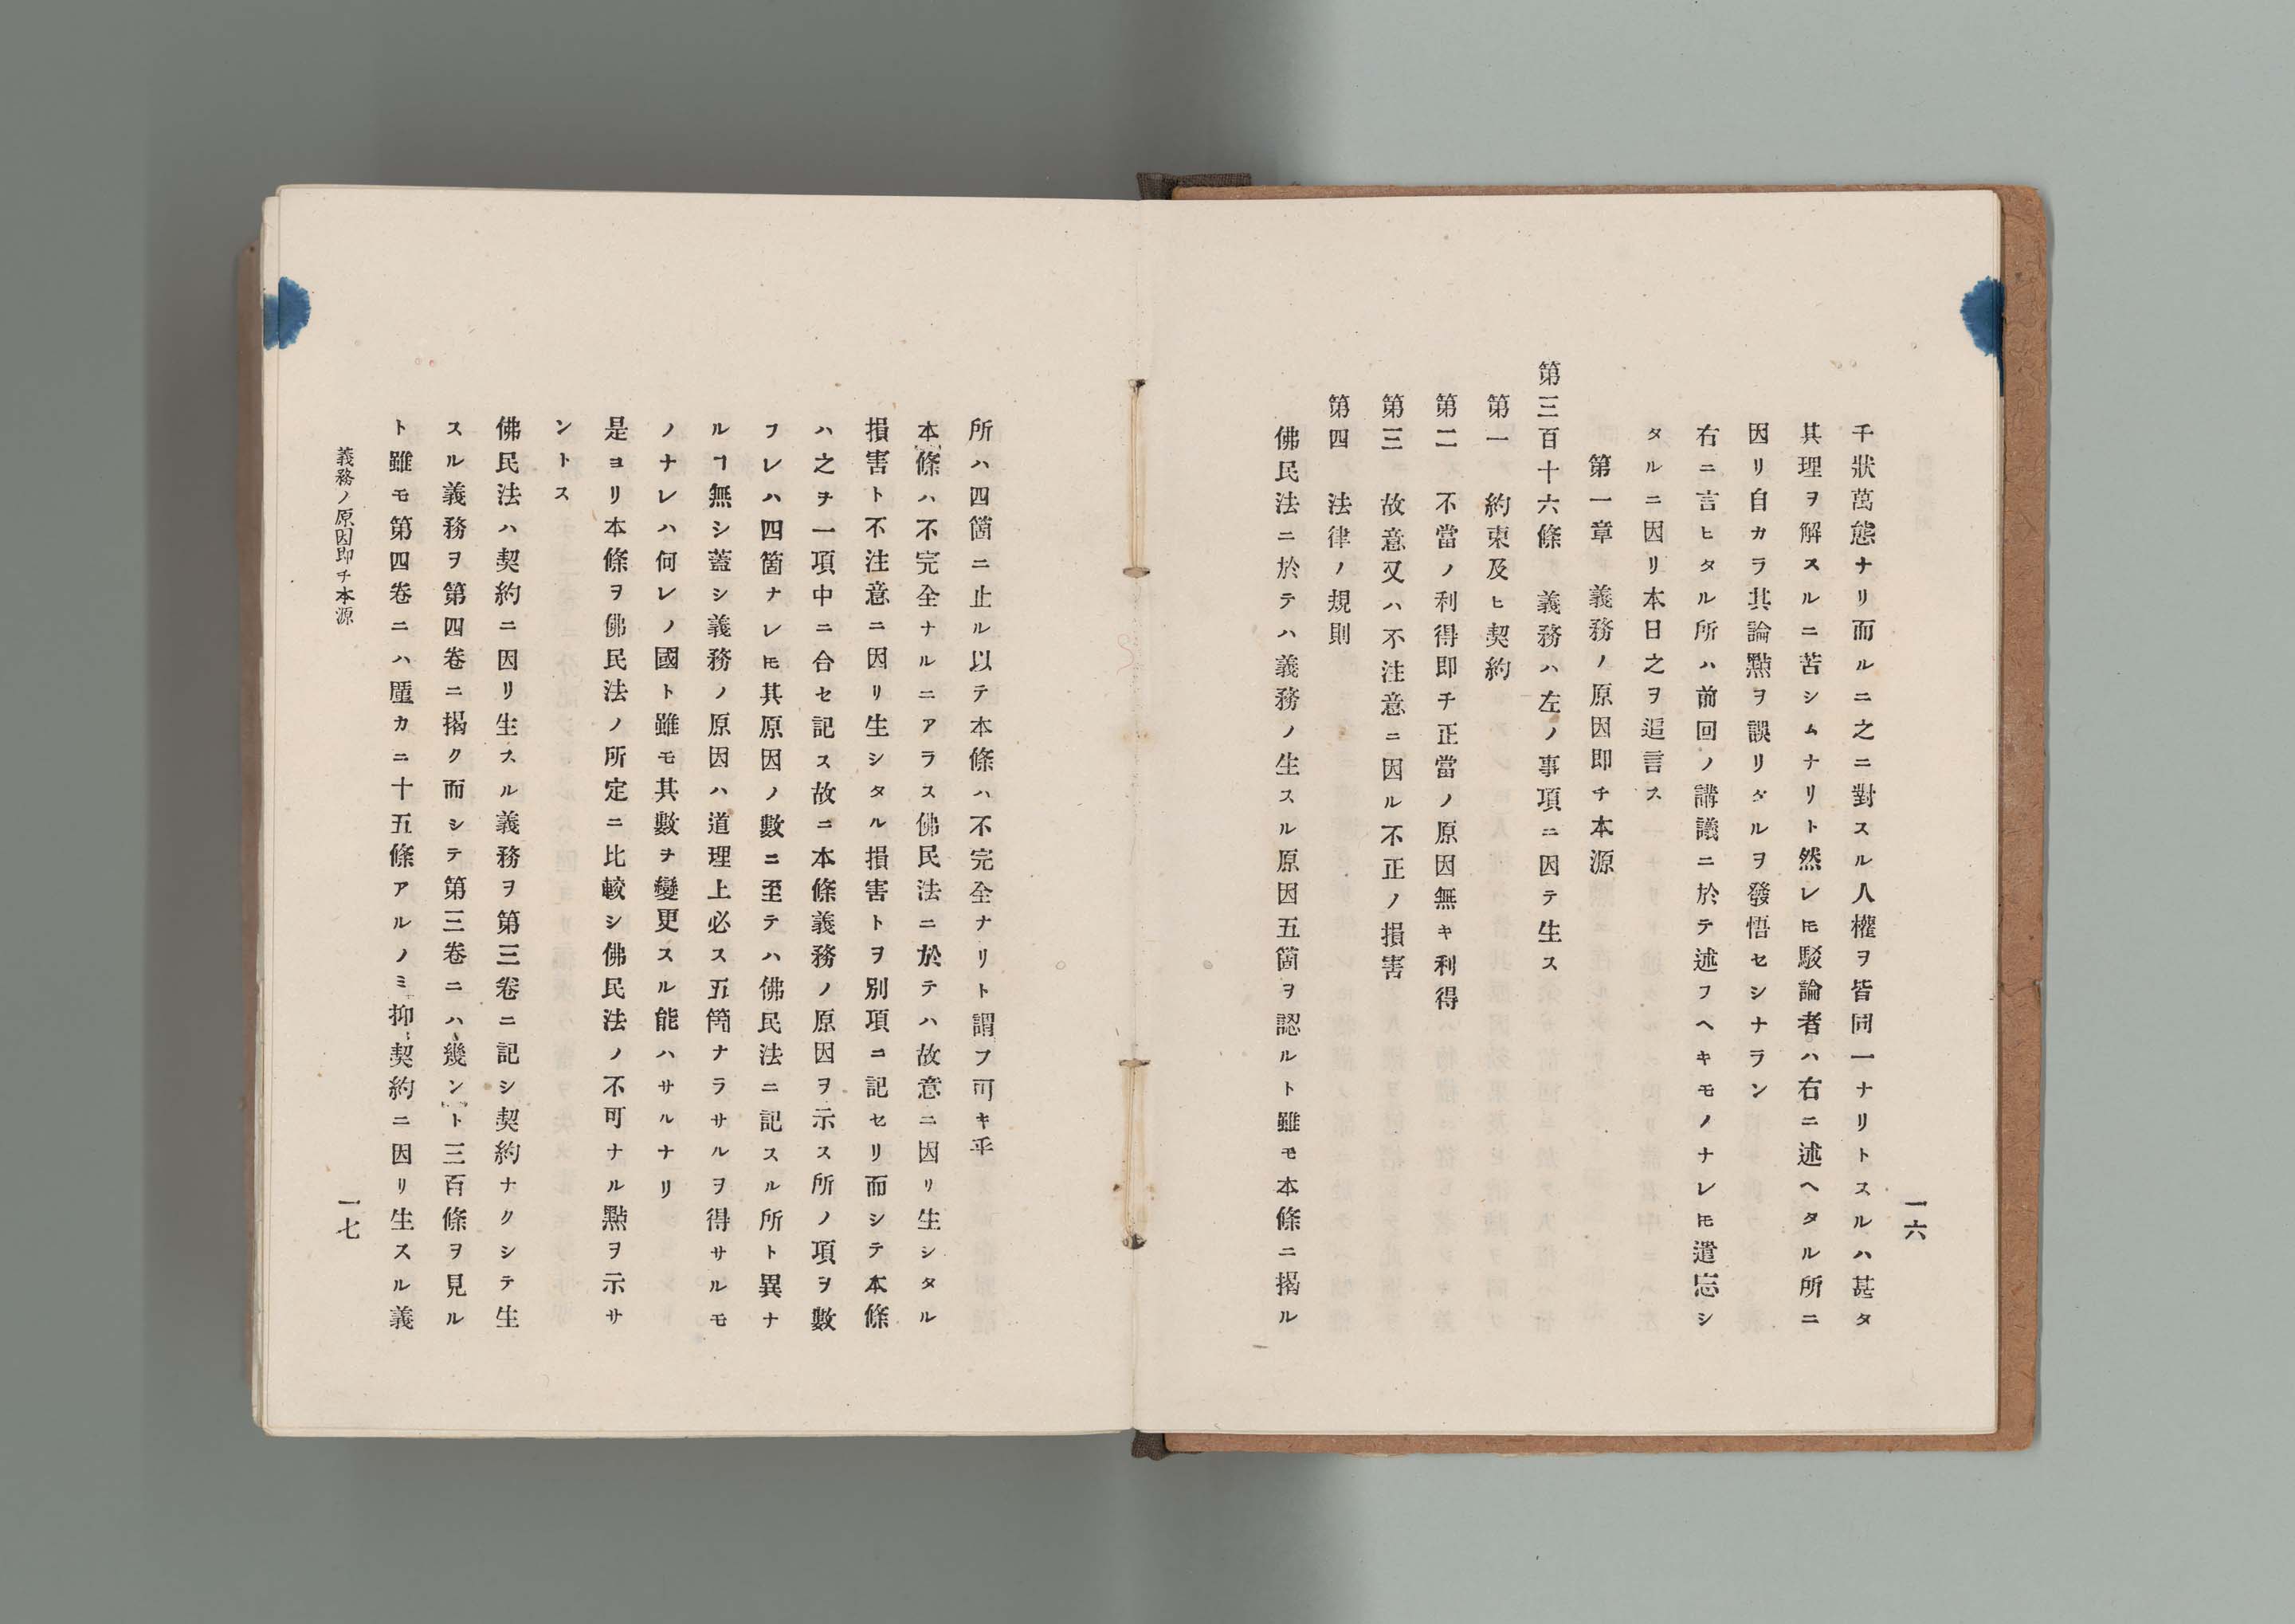 一六
千狀萬態ナリ而ルニ之ニ對スル人權ヲ皆同一ナリトスルハ甚タ
其理ヲ解スルニ苦シムナリト然レㇳモ駁論者ハ右ニ述ヘタル所ニ
因リ自カラ其論點ヲ誤リタルヲ發悟セシナラン
右ニ言ヒタル所ハ前回ノ講議ニ於テ述フヘキモノナレㇳモ遣忘シ
タルニ因リ本日之ヲ追言ス
第一章　義務ノ原因即チ本源
第三百十六條　義務ハ左ノ事項ニ因テ生ス
第一　約束及ヒ契約
第二　不當ノ利得即チ正當ノ原因無キ利得
第三　故意又ハ不注意ニ因ル不正ノ損害
第四　法律ノ規則
佛民法ニ於テハ義務ノ生スル原因五箇ヲ認ルト雖モ本條ニ揭ル
所ハ四箇ニ止ル以テ本條ハ不完全ナリト謂フ可キ乎
本條ハ不完全ナルニアラス佛民法ニ於テハ故意ニ因リ生シタル
損害ト不注意ニ因リ生シタル損害トヲ別項ニ記セリ而シテ本條
ハ之ヲ一項中ニ合セ記ス故ニ本條義務ノ原因ヲ示ス所ノ項ヲ數
フレハ四箇ナレㇳモ其原因ノ數ニ至テハ佛民法ニ記スル所ト異ナ
ルヿ無シ蓋シ義務ノ原因ハ道理上必ス五箇ナラサルヲ得サルモ
ノナレハ何レノ國ト雖モ其數ヲ變更スル能ハサルナリ
是ヨリ本條ヲ佛民法ノ所定ニ比較シ佛民法ノ不可ナル點ヲ示サ
ントス
佛民法ハ契約ニ因リ生スル義務ヲ第三卷ニ記シ契約ナクシテ生
スル義務ヲ第四卷ニ揭ク而シテ第三卷ニハ幾ント三百條ヲ見ル
ト雖モ第四卷ニハ厪カニ十五條アルノミ抑契約ニ因リ生スル義
義務ノ原因即チ本源
一七